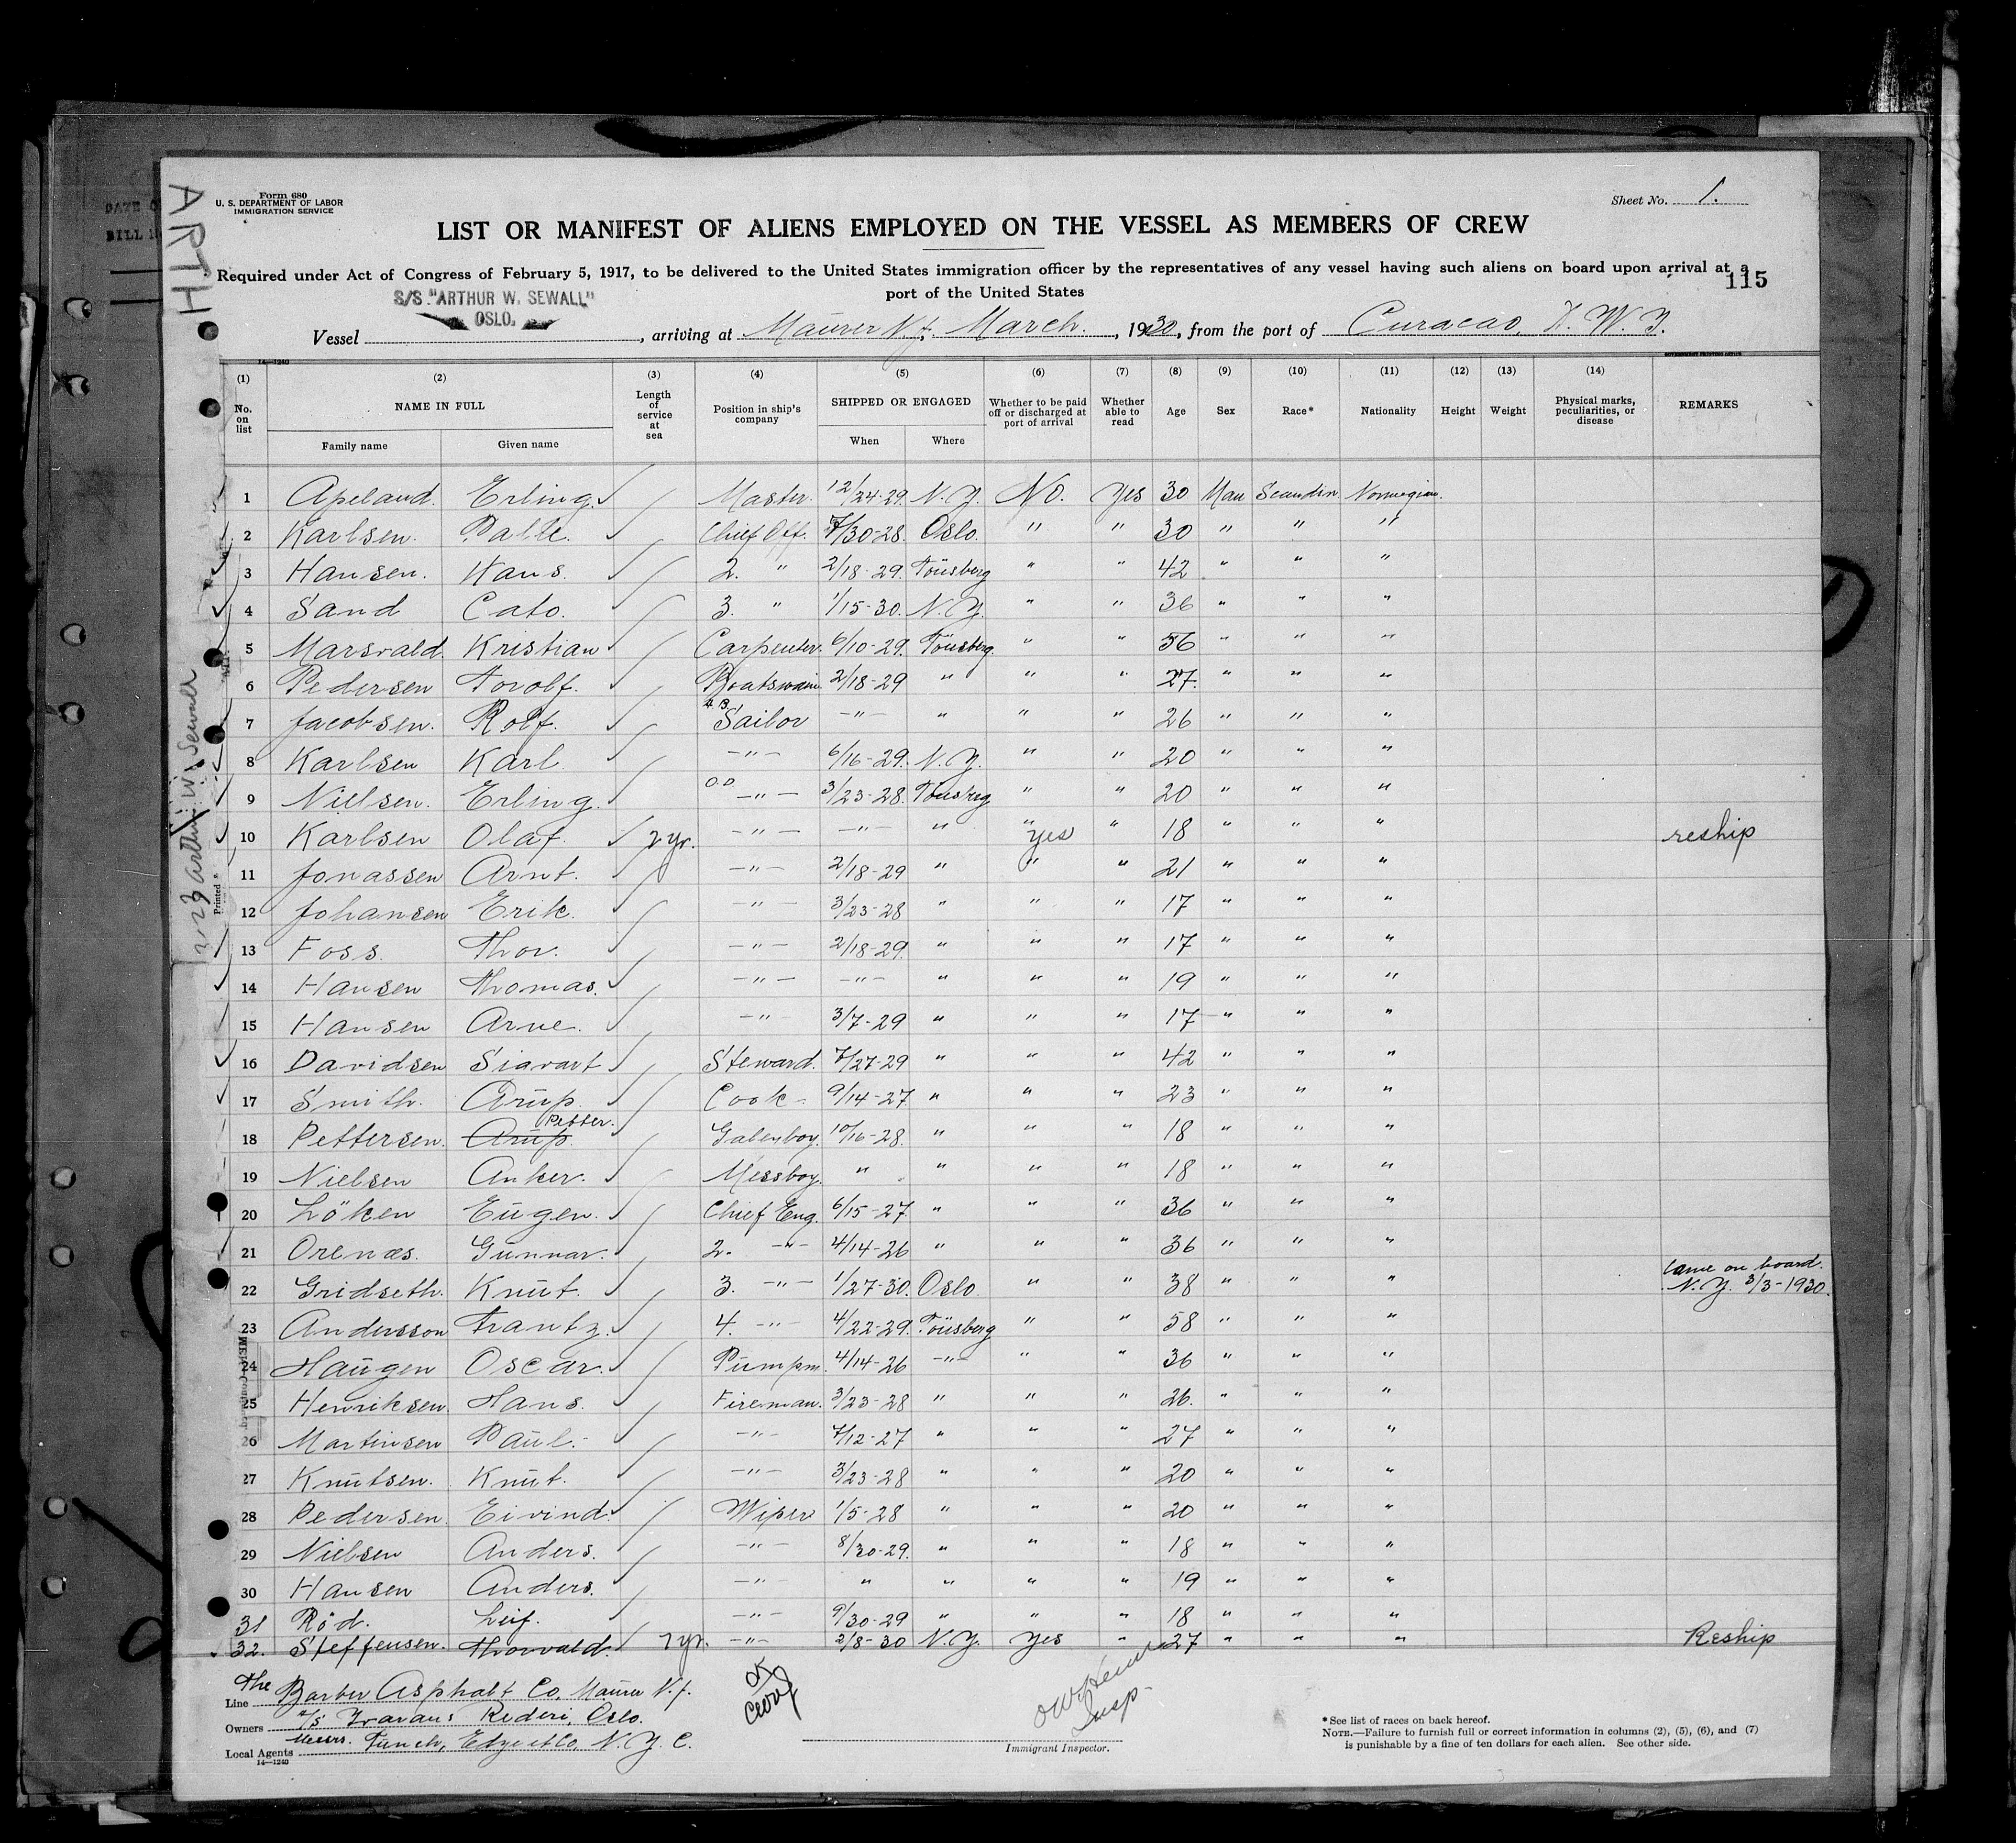 Form 680
U. S. DEPARTMENT OF LABOR
IMMIGRATION SERVICE
Sheet No. 1.
LIST OR MANIFEST OF ALIENS EMPLOYED ON THE VESSEL AS MEMBERS OF CREW
Required under Act of Congress of February 5, 1917, to be delivered to the United States immigration officer by the representatives of any vessel having such aliens on board upon arrival at a
port of the United States
115
S/S "ARTHUR W. SEWALL"
OSLO.
Vessel , arriving at Maurer N.J., March, 1930, from the port of Curacao, D. W. I.
14—1240
(1) (2) (3) (4) (5) (6) (7) (8) (9) (10) (11) (12) (13) (14)
No. on list NAME IN FULL Length of service at sea Position in ship's company SHIPPED OR ENGAGED Whether to be paid off or discharged at port of arrival Whether able to read Age Sex Race* Nationality Height Weight Physical marks, peculiarities, or disease REMARKS
Family name Given name When Where
1 Apeland. Erling. Master. 12/24-29. N.Y. No. Yes 30 Man Scandin Norwegian.
2 Karlsen. Palle. Chief Off. 7/30-28. Oslo. " " 30 " " "
3 Hansen. Hans. 2. " 2/18-29. Tönsberg " " 42 " " "
4 Sand Cato. 3. " 1/15-30. N.Y. " " 36 " " "
5 Marsvald. Kristian Carpenter. 6/10-29. Tönsberg " " 56 " " "
6 Pedersen Torolf. Boatswain. 2/18-29 " " " 27. " " "
7 Jacobsen. Rolf. A.B. Sailor —"— " " " 26 " " "
8 Karlsen Karl. —"— 6/16-29. N.Y. " " 20 " " "
9 Nielsen. Erling. —"— 3/23-28. Tönsberg " " 20 " " "
10 Karlsen Olaf. 2 yr. —"— —"— " yes " 18 " " " reship
11 Jonassen Arnt. —"— 2/18-29 " " " 21 " " "
12 Johansen Erik. —"— 3/23-28 " " " 17 " " "
13 Foss. Thor. —"— 2/18-29. " " " 17 " " "
14 Hansen Thomas. —"— —"— " " " 19 " " "
15 Hansen Arne. —"— 3/7-29 " " " 17 " " "
16 Davidsen Siavart Steward. 7/27-29 " " " 42 " " "
17 Smith. Arup. Cook 9/14-27 " " " 23 " " "
18 Pettersen. Arup. Petter. Galeyboy. 10/16-28. " " " 18 " " "
19 Nielsen Anker. Messboy. " " " " 18 " " "
20 Löken Eugen. Chief Eng. 6/15-27 " " " 36 " " "
21 Orenæs. Gunnar. 2. —"— 4/14-26 " " " 36 " " "
22 Gridseth. Knut. 3. —"— 1/27-30. Oslo " " 38 " " " Came on board. N.Y. 3/3-1930.
23 Andersson Frantz. 4. —"— 4/22-29. Tönsberg " " 58 " " "
24 Haugen Oscar. Pumpm. 4/14-26 —"— " " 36 " " "
25 Henriksen. Hans. Fireman. 3/23-28 " " " 26. " " "
26 Martinsen Paul. —"— 7/12-27 " " " 27 " " "
27 Knutsen. Knut. —"— 3/23-28 " " " 20 " " "
28 Pedersen. Eivind. Wiper 1/5-28 " " " 20 " " "
29 Nielsen Anders. —"— 8/30-29. " " " 18 " " "
30 Hansen Anders. —"— " " " " 19 " " "
31 Röd. Leif. —"— 9/30-29 " " " 18 " " "
32. Steffensen. Thorvald. 7 yr. —"— 2/8-30 N.Y. Yes " 27 " " " Reship
Line The Barber Asphalt Co. Maurer N.J.
Owners A/S Rederi, Oslo.
Local Agents Messrs. Funch, Edye & Co, N. Y. C.
14—1240
OK
Insp.
Immigrant Inspector.
* See list of races on back hereof.
NOTE.—Failure to furnish full or correct information in columns (2), (5), (6), and (7)
is punishable by a fine of ten dollars for each alien. See other side.
ARTH
Arthur W. Sewall